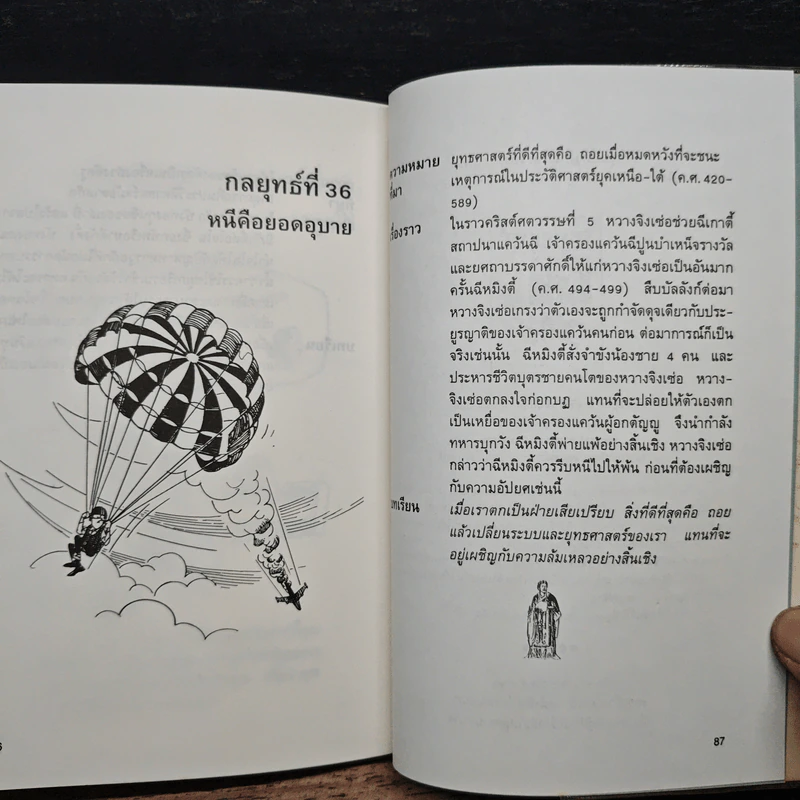 กลยุทธ์ที่ 36
หนีคือยอดอุบาย
ความหมาย ยุทธศาสตร์ที่ดีที่สุดคือ ถอยเมื่อหมดหวังที่จะชนะ
ที่มา เหตุการณ์ในประวัติศาสตร์ยุคเหนือ-ใต้ (ค.ศ. 420-
589)
เรื่องราว ในราวคริสต์ศตวรรษที่ 5 หวางจิงเซ่อช่วยฉีเกาตี้
สถาปนาแคว้นฉี เจ้าครองแคว้นฉีปูนบำเหน็จรางวัล
และยศถาบรรดาศักดิ์ให้แก่หวางจิงเซ่อเป็นอันมาก
ครั้นฉีหมิงตี้ (ค.ศ. 494-499) สืบบัลลังก์ต่อมา
หวางจิงเซ่อเกรงว่าตัวเองจะถูกกำจัดดุจเดียวกับประ-
ยูรญาติของเจ้าครองแคว้นคนก่อน ต่อมาการณ์ก็เป็น
จริงเช่นนั้น ฉีหมิงตี้สั่งจำขังน้องชาย 4 คน และ
ประหารชีวิตบุตรชายคนโตของหวางจิงเซ่อ หวาง-
จิงเซ่อตกลงใจก่อกบฏ แทนที่จะปล่อยให้ตัวเองตก
เป็นเหยื่อของเจ้าครองแคว้นผู้อกตัญญู จึงนำกำลัง
ทหารบุกวัง ฉีหมิงตี้พ่ายแพ้อย่างสิ้นเชิง หวางจิงเซ่อ
กล่าวว่าฉีหมิงตี้ควรรีบหนีไปให้พ้น ก่อนที่ต้องเผชิญ
กับความอัปยศเช่นนี้
บทเรียน เมื่อเราตกเป็นฝ่ายเสียเปรียบ สิ่งที่ดีที่สุดคือ ถอย
แล้วเปลี่ยนระบบและยุทธศาสตร์ของเรา แทนที่จะ
อยู่เผชิญกับความล้มเหลวอย่างสิ้นเชิง
87